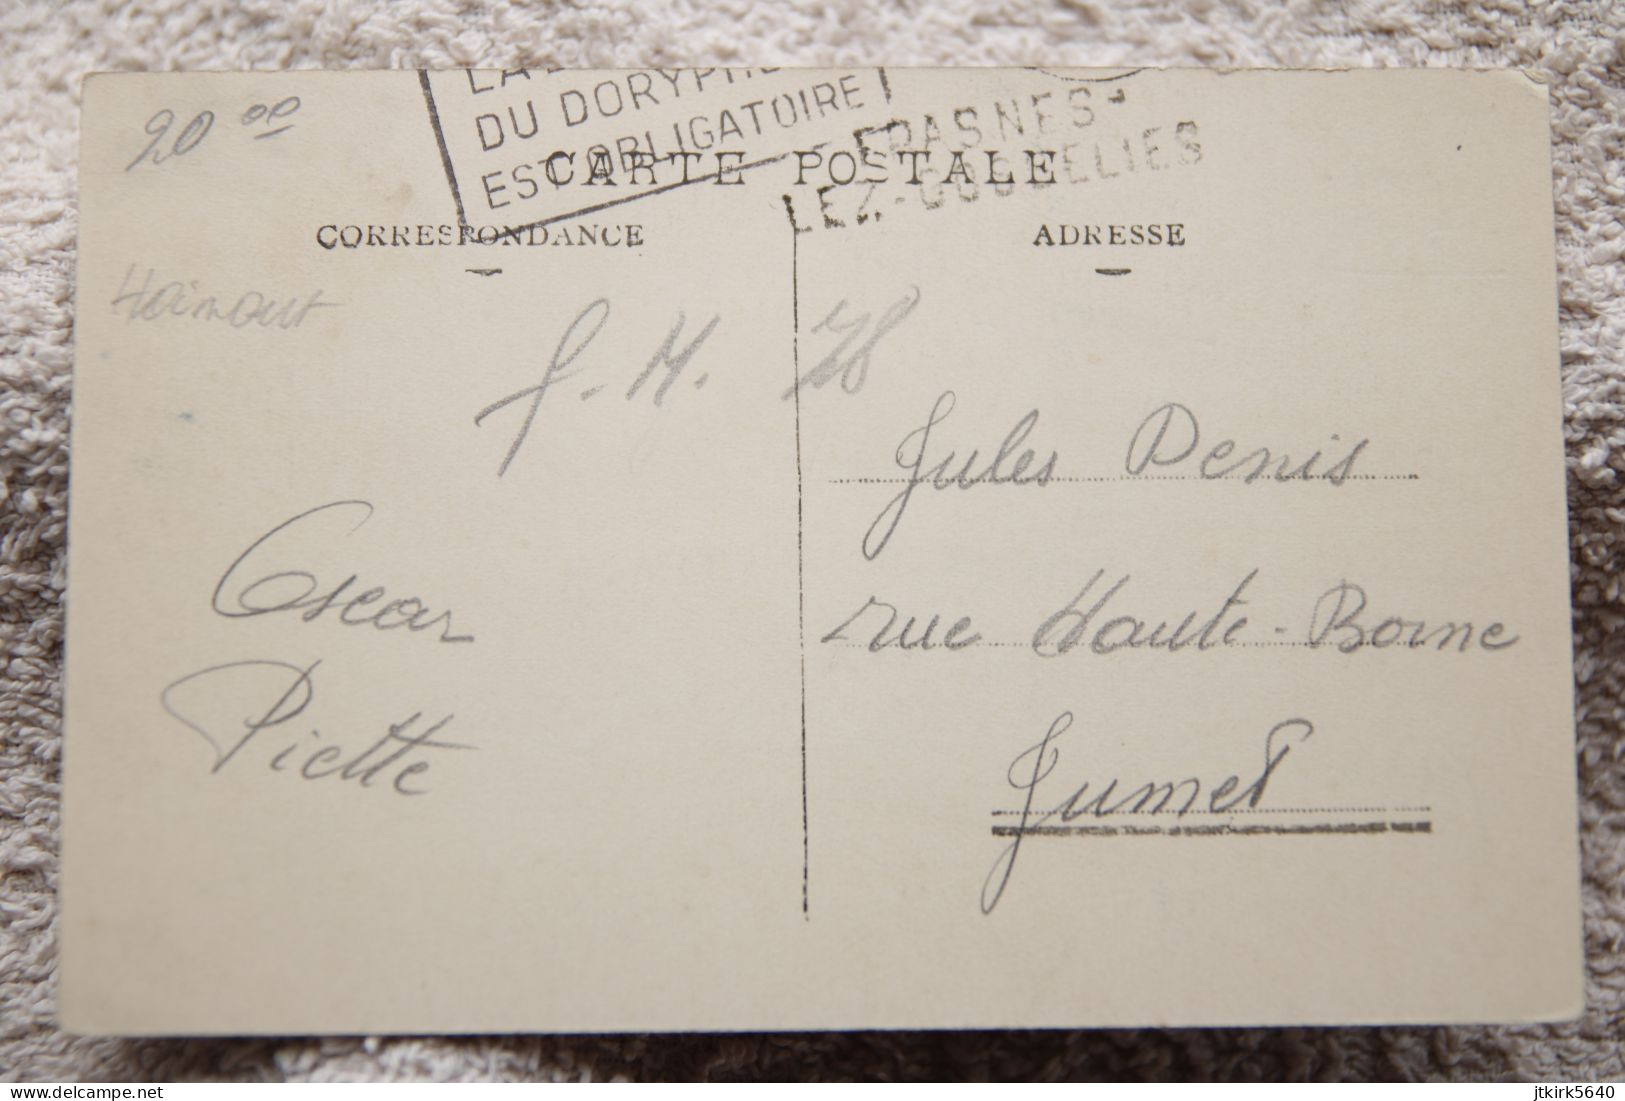 20 00
DU DORYPH
EST OBLIGATOIRE
FRASNES-
LEZ-GOSSELIES
CARTE POSTALE
CORRESPONDANCE
ADRESSE
Hainaut
Jules Denis
rue Haute-Borne
Jumet
Oscar
Piette
delcampe.net
jtkirk5640